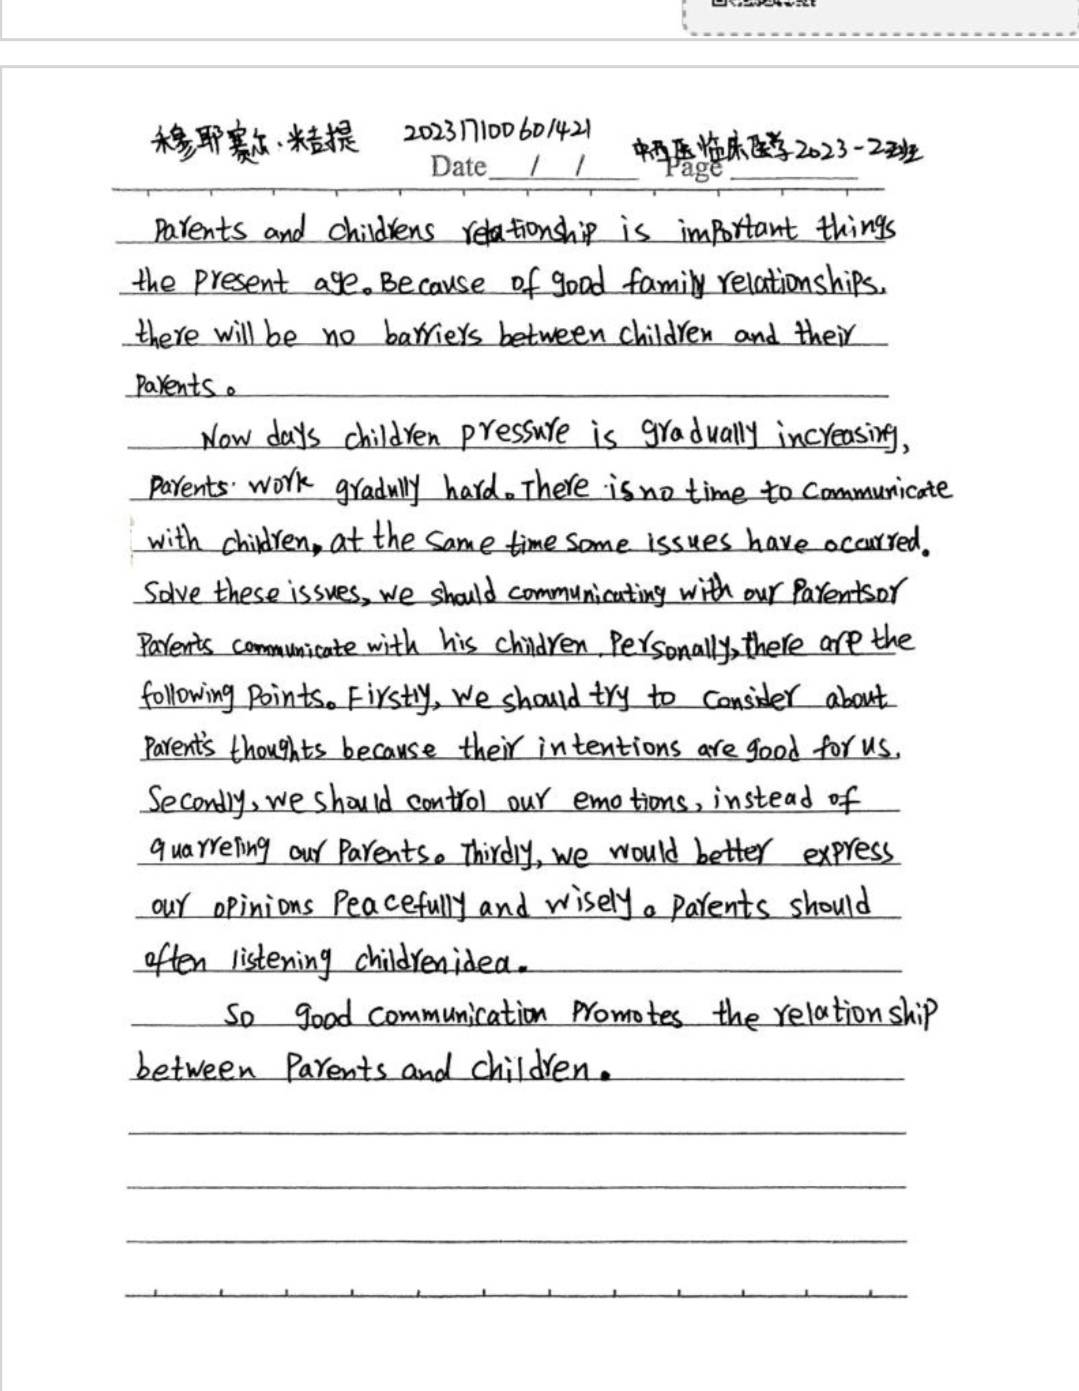 穆耶赛尔·米吉提 202317100601421 中西医临床医学2023-2班
Date / / Page
Parents and childrens relationship is important things
the present age。Because of good family relationships,
there will be no barriers between children and their
parents。
Now days children pressure is gradually increasing,
parents work gradully hard。There is no time to communicate
with children, at the same time some issues have occurred.
Solve these issues, we should communicating with our parents or
parents communicate with his children. Personally, there are the
following points。Firstly, we should try to consider about
parent's thoughts because their intentions are good for us.
Secondly, we should control our emotions, instead of
quarreling our parents。Thirdly, we would better express
our opinions peacefully and wisely。parents should
often listening children idea.
So good communication promotes the relationship
between parents and children.